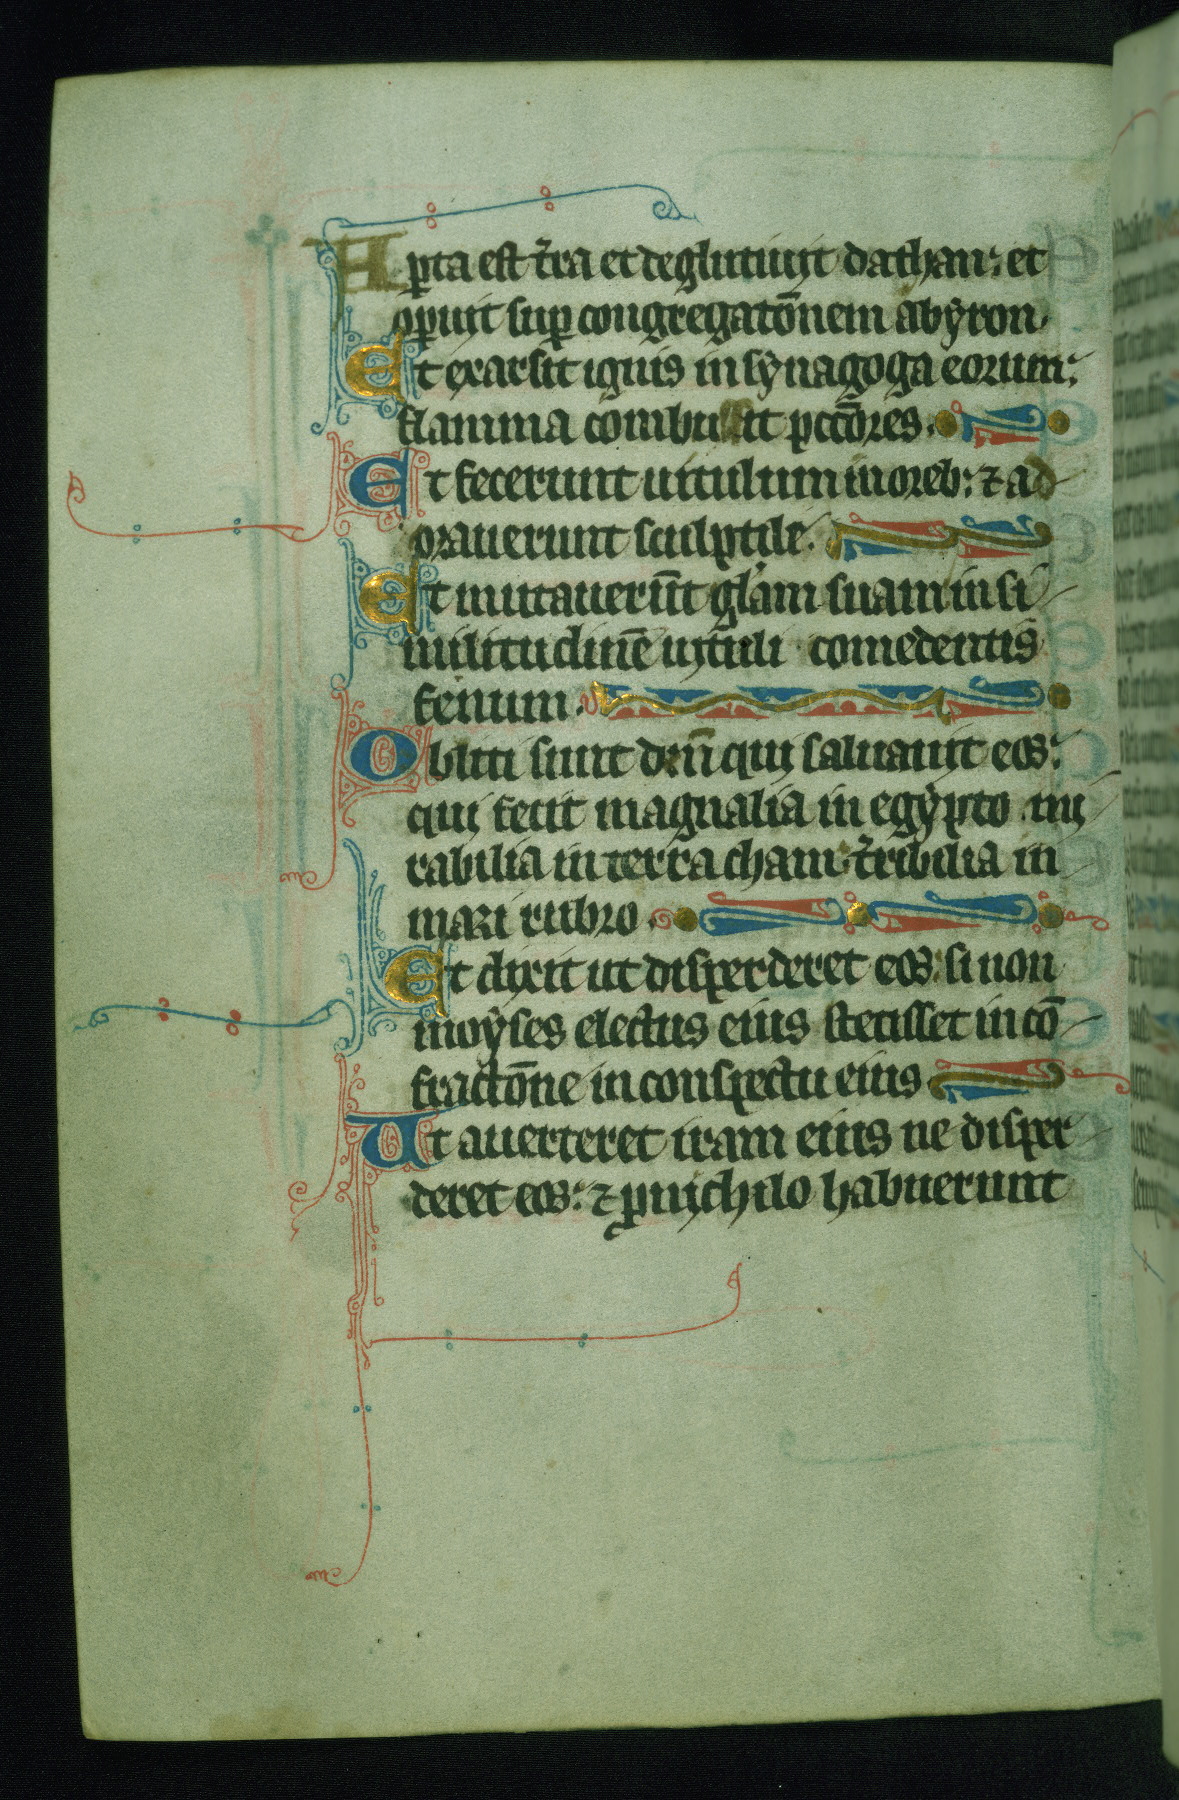 Aꝑta est t̄ra et deglutiuit dathan: et
oꝑuit suꝑ congregatōnem abyron.
Et exarsit ignis in synagoga eorum:
flamma combussit pctōres.
Et fecerunt uitulum in oreb: ⁊ ad
orauerunt sculptile.
Et mutauerūt gl'am suam in si
militudinē uituli comedentis
fenum.
Obliti sunt dn̄m qui saluauit eos:
qui fecit magnalia in egypto mi
rabilia in terra cham: t̄ribilia in
mari rubro.
Et dixit ut disperderet eos: si non
moyses electus eius stetisset in cō
fractōne in conspectu eius
Ut auerteret iram eius ne disper
deret eos: ⁊ ꝓ nichilo habuerunt